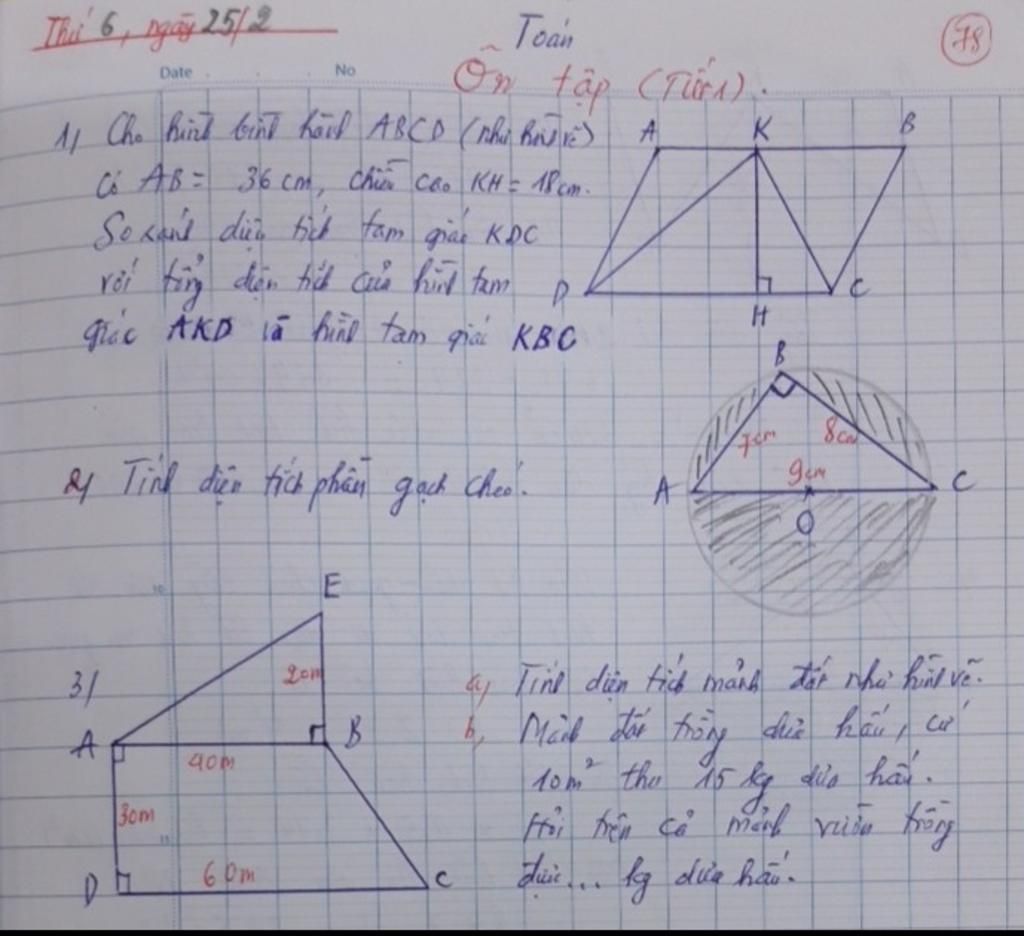 Thứ 6, ngày 25/2
Toán
78
Date No
Ôn tập (Tiết 1).
1, Cho hình bình hành ABCD (như hình vẽ)
Có AB = 36 cm, chiều cao KH = 18 cm.
So sánh diện tích tam giác KDC
với tổng diện tích của hình tam
giác AKD và hình tam giác KBC
A K B
D H C
2, Tính diện tích phần gạch chéo.
B
7cm 8cm
9cm
A C
O
3/
E
20m
A B
40m
30m
60m
D C
a, Tính diện tích mảnh đất như hình vẽ.
b, Mảnh đất trồng dưa hấu, cứ
10m² thu 15 kg dưa hấu.
Hỏi trên cả mảnh vườn trồng
được... kg dưa hấu.